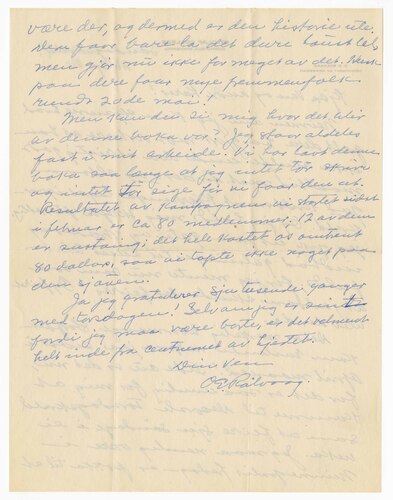 være der, og dermed er den historie ute.
Dere faar bare la det dure banset lel,
men gjør nu ikke for meget av det. Husk
paa dere faar mye fremmenfolk
rundt 20de mai!
Men kan du si mig hvor det blir
av denne boka vor? Jeg staar aldeles
fast i mit arbeide. Vi har lovt denne
boka saa lange at jeg intet tør skrive
og intet tør sige før vi faar den ut.
Resultatet av kampagnen vi startet sidst
i februar er ca 80 medlemmer, 12 av dem
er sustaing; det hele kostet os omtrent
80 dollars, saa vi tapte ikke noget paa
den sjauen.
Ja jeg gratulerer syv tusende ganger
med torsdagen! Selv om jeg er sint
fordi jeg maa være borte, er det velment
helt inde fra centrumet av hjertet.
Din ven
O.E. Rölvaag.